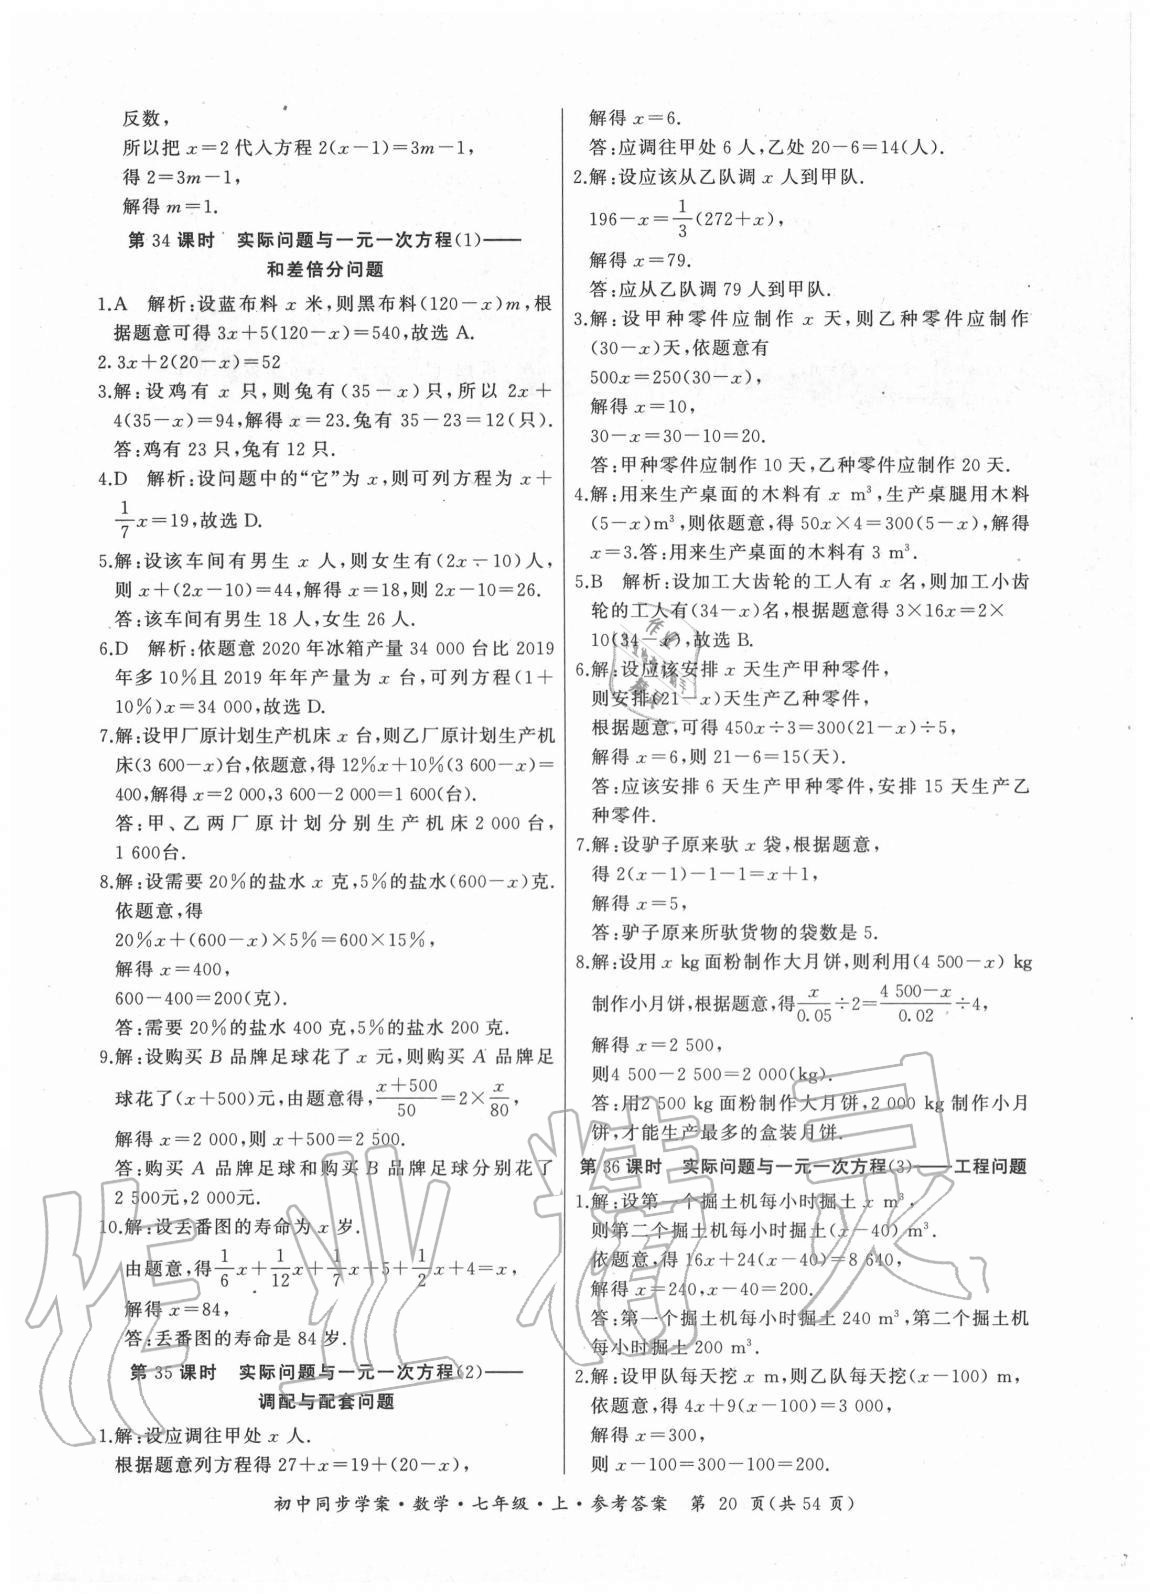 反数,
所以把 x=2 代入方程 2(x-1)=3m-1,
得 2=3m-1,
解得 m=1.
第 34 课时 实际问题与一元一次方程(1)——
和差倍分问题
1.A 解析:设蓝布料 x 米,则黑布料(120-x)m,根
据题意可得 3x+5(120-x)=540,故选 A.
2. 3x+2(20-x)=52
3.解:设鸡有 x 只,则兔有(35-x)只,所以 2x+
4(35-x)=94,解得 x=23.兔有 35-23=12(只).
答:鸡有 23 只,兔有 12 只.
4.D 解析:设问题中的“它”为 x,则可列方程为 x+
1/7 x=19,故选 D.
5.解:设该车间有男生 x 人,则女生有(2x-10)人,
则 x+(2x-10)=44,解得 x=18,则 2x-10=26.
答:该车间有男生 18 人,女生 26 人.
6.D 解析:依题意 2020 年冰箱产量 34 000 台比 2019
年多 10%且 2019 年年产量为 x 台,可列方程(1+
10%)x=34 000,故选 D.
7.解:设甲厂原计划生产机床 x 台,则乙厂原计划生产机
床(3 600-x)台,依题意,得 12%x+10%(3 600-x)=
400,解得 x=2 000,3 600-2 000=1 600(台).
答:甲、乙两厂原计划分别生产机床 2 000 台,
1 600台.
8.解:设需要 20%的盐水 x 克,5%的盐水(600-x)克.
依题意,得
20%x+(600-x)×5%=600×15%,
解得 x=400,
600-400=200(克).
答:需要 20%的盐水 400 克,5%的盐水 200 克.
9.解:设购买 B 品牌足球花了 x 元,则购买 A 品牌足
球花了(x+500)元,由题意得,(x+500)/50=2×x/80,
解得 x=2 000,则 x+500=2 500.
答:购买 A 品牌足球和购买 B 品牌足球分别花了
2 500元,2 000元.
10.解:设丢番图的寿命为 x 岁.
由题意,得 1/6 x+1/12 x+1/7 x+5+1/2 x+4=x,
解得 x=84,
答:丢番图的寿命是 84 岁.
第 35 课时 实际问题与一元一次方程(2)——
调配与配套问题
1.解:设应调往甲处 x 人.
根据题意列方程得 27+x=19+(20-x),
解得 x=6.
答:应调往甲处 6 人,乙处 20-6=14(人).
2.解:设应该从乙队调 x 人到甲队.
196-x=1/3(272+x),
解得 x=79.
答:应从乙队调 79 人到甲队.
3.解:设甲种零件应制作 x 天,则乙种零件应制作
(30-x)天,依题意有
500x=250(30-x),
解得 x=10,
30-x=30-10=20.
答:甲种零件应制作 10 天,乙种零件应制作 20 天.
4.解:用来生产桌面的木料有 x m³,生产桌腿用木料
(5-x)m³,则依题意,得 50x×4=300(5-x),解得
x=3.答:用来生产桌面的木料有 3 m³.
5.B 解析:设加工大齿轮的工人有 x 名,则加工小齿
轮的工人有(34-x)名,根据题意得 3×16x=2×
10(34-x),故选 B.
6.解:设应该安排 x 天生产甲种零件,
则安排(21-x)天生产乙种零件,
根据题意,可得 450x÷3=300(21-x)÷5,
解得 x=6,则 21-6=15(天).
答:应该安排 6 天生产甲种零件,安排 15 天生产乙
种零件.
7.解:设驴子原来驮 x 袋,根据题意,
得 2(x-1)-1-1=x+1,
解得 x=5,
答:驴子原来所驮货物的袋数是 5.
8.解:设用 x kg面粉制作大月饼,则利用(4 500-x) kg
制作小月饼,根据题意,得 x/0.05÷2=(4 500-x)/0.02÷4,
解得 x=2 500,
则4 500-2 500=2 000(kg).
答:用2 500 kg面粉制作大月饼,2 000 kg制作小月
饼,才能生产最多的盒装月饼.
第 36 课时 实际问题与一元一次方程(3)——工程问题
1.解:设第一个掘土机每小时掘土 x m³,
则第二个掘土机每小时掘土(x-40) m³.
依题意,得 16x+24(x-40)=8 640,
解得 x=240,x-40=200.
答:第一个掘土机每小时掘土 240 m³,第二个掘土机
每小时掘土 200 m³.
2.解:设甲队每天挖 x m,则乙队每天挖(x-100) m,
依题意,得 4x+9(x-100)=3 000,
解得 x=300,
则 x-100=300-100=200.
初中同步学案·数学·七年级·上·参考答案 第 20 页(共 54 页)
作业精灵